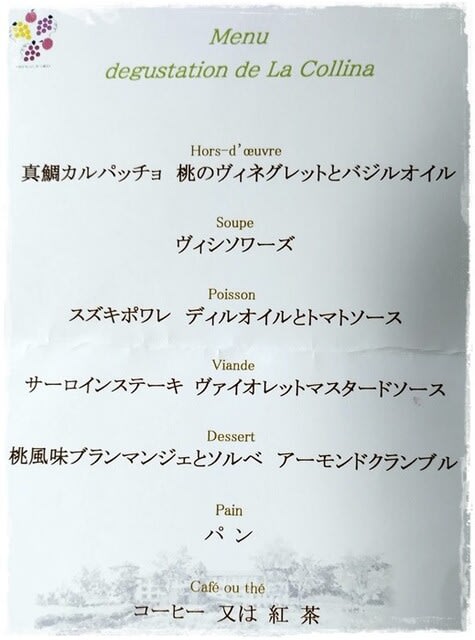 Menu
degustation de La Collina
Hors-d'œuvre
真鯛カルパッチョ 桃のヴィネグレットとバジルオイル
Soupe
ヴィシソワーズ
Poisson
スズキポワレ ディルオイルとトマトソース
Viande
サーロインステーキ ヴァイオレットマスタードソース
Dessert
桃風味ブランマンジェとソルベ アーモンドクランブル
Pain
パン
Café ou thé
コーヒー 又は 紅 茶